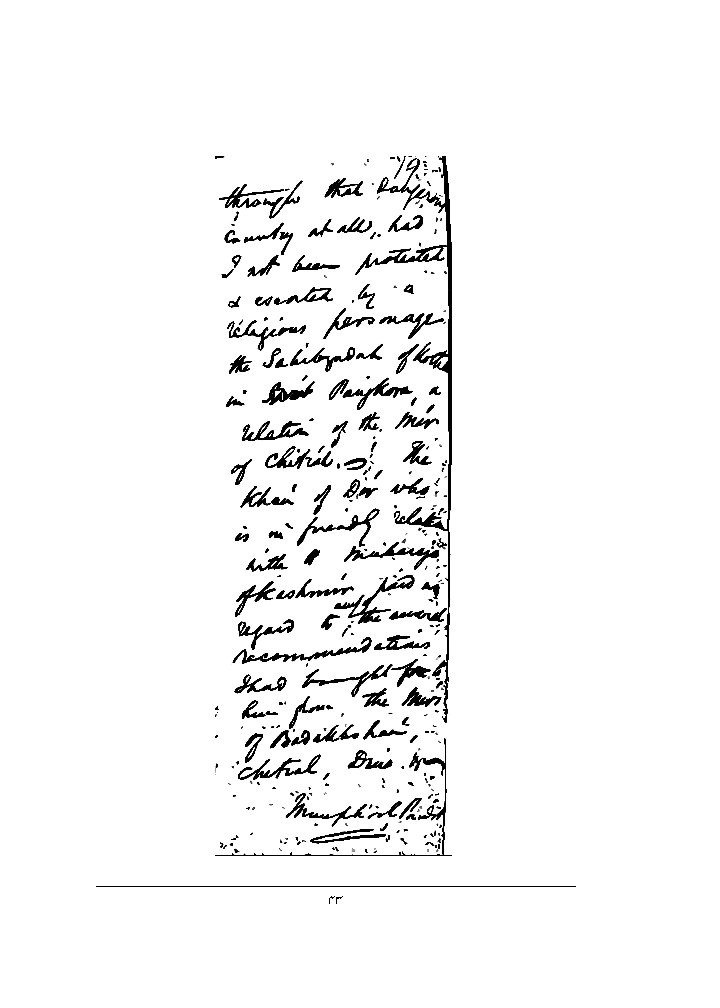 19
through that Dangerous
Country at all, had
I not been protected
& escorted by a
religious personage
the Sahibzadah of Kotha
in Panjkora, a
relation of the Mir
of Chitral. The
Khan of Dir who
is in friendly relation
with Maharaja
of Kashmir paid no
regard to any the several
recommendations
I had brought for to
him from the Mirs
of Badakhshan,
Chitral,
Munphool Pundit
٢٣